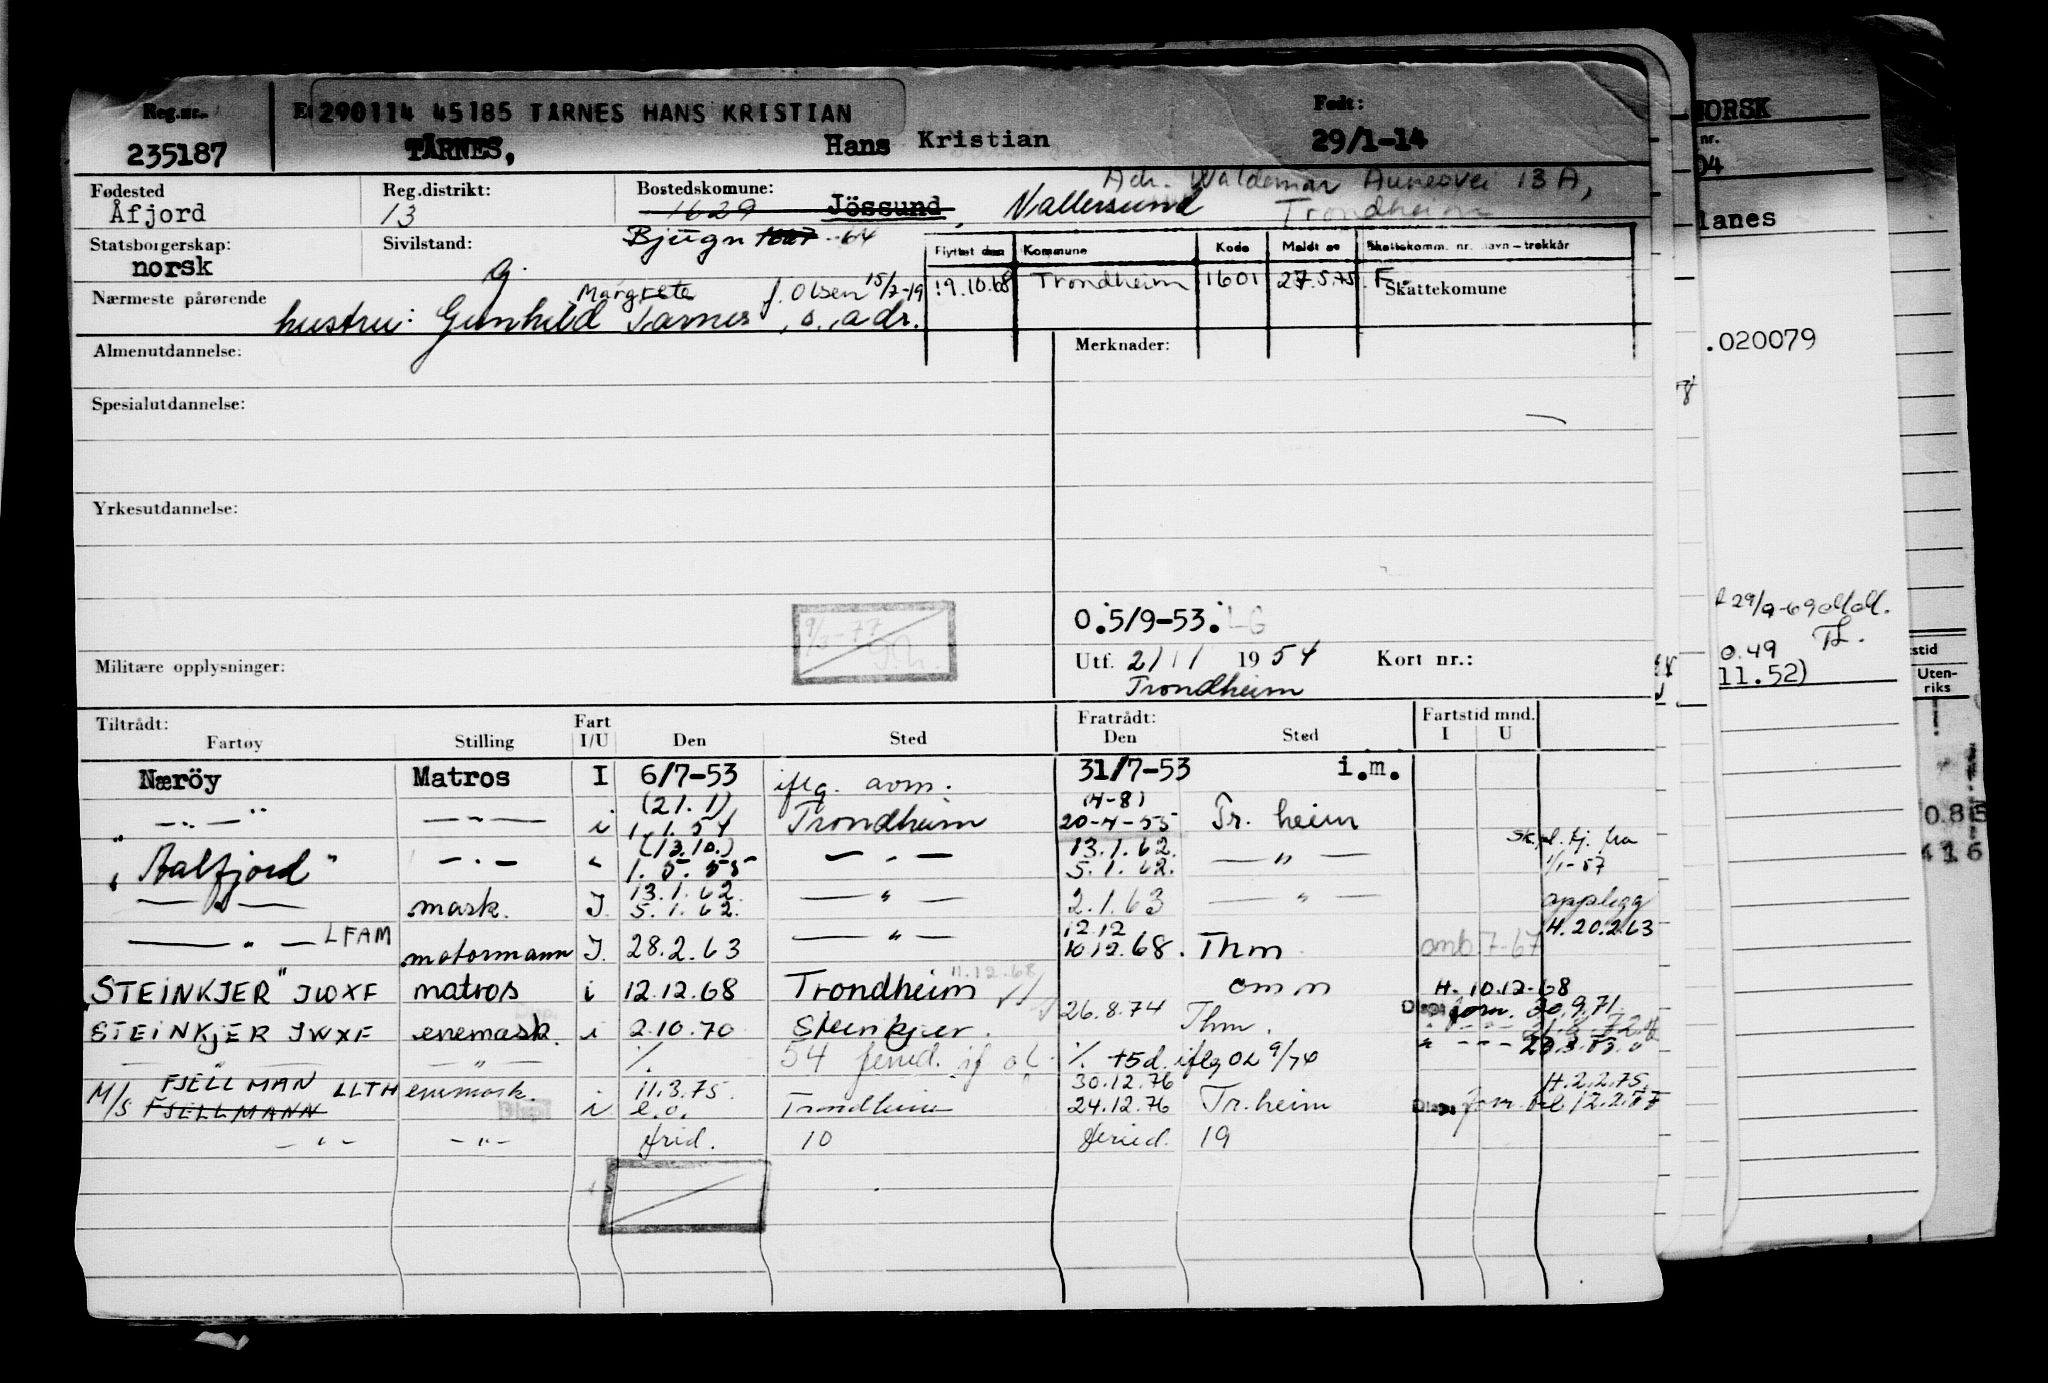 Reg.nr. E 290114 45185 TARNES HANS KRISTIAN Født:
235187 TÅRNES, Hans Kristian 29/1-14
Fødested Reg.distrikt: Bostedskomune: Adr. Waldemar Aunesvei 13 A,
Åfjord 13 1629 Jössund, Vallersund Trondheim
Statsborgerskap: Sivilstand: Bjugn 1627 -64
norsk g.
Flyttet den Kommune Kode Meldt av Skattekomm. nr. navn - trekkår
19.10.68 Trondheim 1601 27.5.75 F.
Nærmeste pårørende Margrete f. Olsen 15/7-19 Skattekomune
hustru: Gunhild Tårnes, s. adr.
Almenutdannelse: Merknader:
Spesialutdannelse:
Yrkesutdannelse:
9/3-77
O.5/9-53. LG
Militære opplysninger: Utf. 2/11 1954 Kort nr.:
Trondheim
Tiltrådt: Fart Fratrådt: Fartstid mnd.
Fartøy Stilling I/U Den Sted Den Sted I U
Næröy Matros I 6/7-53 iflg. avm. 31/7-53 i.m.
(21.1) (4-8)
" - " - " - " - i 1.1.54 Trondheim 20-4-55 Tr. heim
(13.10.) 13.1.62. sk.pl. tj. fra
"Aalfjord" - " - 1.5.55 - " - 5.1.62. - " - 1/1-57
13.1.62
- " - mask. I. 5.1.62. - " - 2.1.63 - " - opplegg
12.12 H. 20.2.63
- " - LFAM motormann I. 28.2.63 - " - 10.12.68. Thm omb 7-67
11.12.68
"STEINKJER" JWXF matros i 12.12.68 Trondheim omm H. 10.12-68
26.8.74 Disp. forn. 30.9.71
STEINKJER JWXF enemask. i 2.10.70 Steinkjer. Thm.
- " - - " - % 54 feried. % +5d. iflg OL 9/74
FJELLMAN 30.12.76 H. 2.2.75.
M/S FJELLMANN LLTH enemask. i 11.3.75. e.o. Trondheim 24.12.76 Tr.heim Disp. forn. til 12.2.77
- " - - " - frid. 10 feried. 19
NORSK
nr.
04
lanes
.020079
29/9-69
0.49
11.52)
stid
Uten-
riks
0.85
416